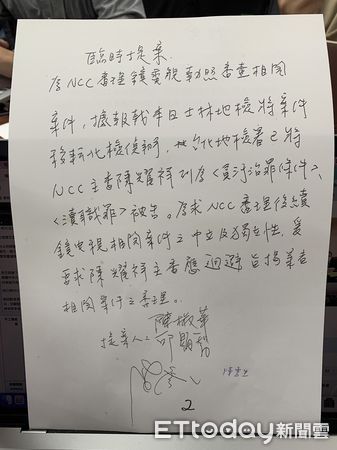 臨時提案
存NCC審理鏡電視執照審查相關
案件,據報載本日士林地檢將案件
移轉北檢偵辦,台北地檢署已將
NCC主委陳耀祥列為《貪污治罪條件》、
《瀆職罪》被告。為求NCC審理後續
鏡電視相關案件之中立及獨立性,爰
要求陳耀祥主委應迴避旨揭審查
相關案件之審理。
陳椒華
提案人:邱顯智
2
ETtoday新聞雲